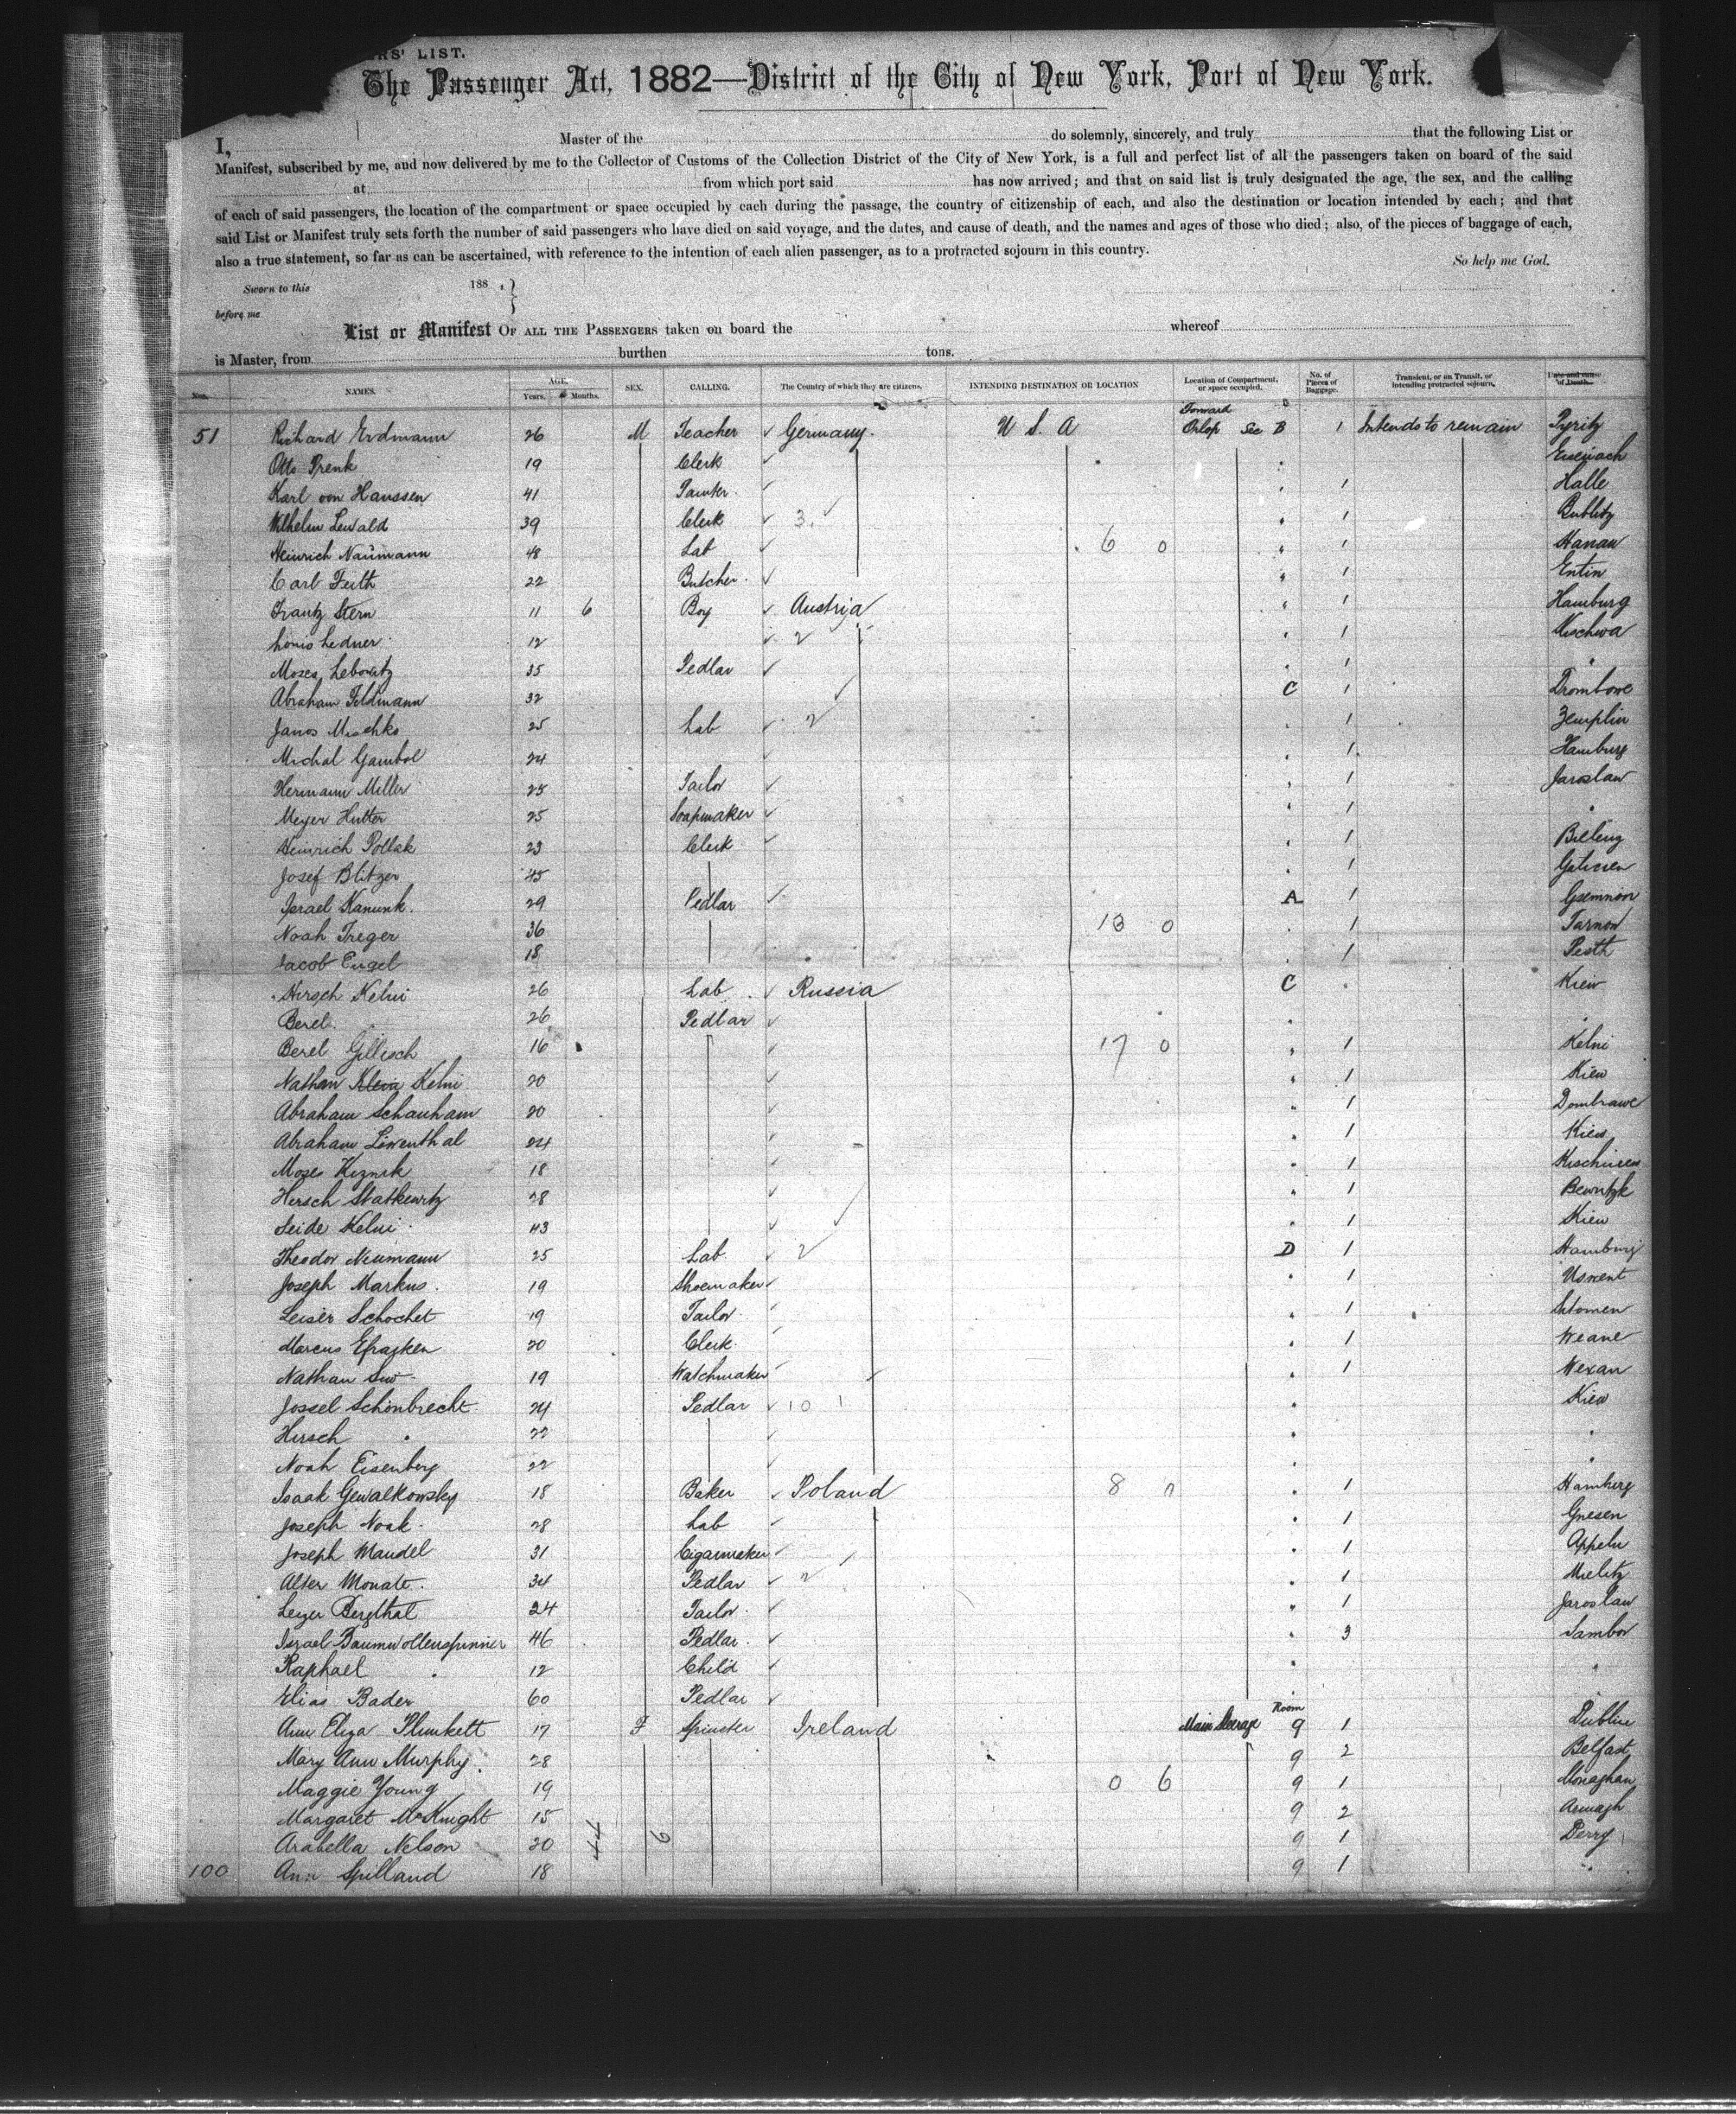 RS' LIST.
The Passenger Act, 1882—District of the City of New York, Port of New York.
I, Master of the do solemnly, sincerely, and truly that the following List or
Manifest, subscribed by me, and now delivered by me to the Collector of Customs of the Collection District of the City of New York, is a full and perfect list of all the passengers taken on board of the said
at from which port said has now arrived; and that on said list is truly designated the age, the sex, and the calling
of each of said passengers, the location of the compartment or space occupied by each during the passage, the country of citizenship of each, and also the destination or location intended by each; and that
said List or Manifest truly sets forth the number of said passengers who have died on said voyage, and the dates, and cause of death, and the names and ages of those who died; also, of the pieces of baggage of each,
also a true statement, so far as can be ascertained, with reference to the intention of each alien passenger, as to a protracted sojourn in this country.
So help me God.
Sworn to this 188 ,
before me
List or Manifest OF ALL THE PASSENGERS taken on board the whereof
is Master, from burthen tons.
Nos. NAMES. AGE. Years. Months. SEX. CALLING. The Country of which they are citizens. INTENDING DESTINATION OR LOCATION Location of Compartment, or space occupied. No. of Pieces of Baggage. Transient, or on Transit, or intending protracted sojourn. Date and cause of Death.
51 Richard Erdmann 26 M Teacher Germany. U S. A Forward Orlop Sec B 1 Intends to remain Pyritz
Otto Prenk 19 Clerk Eisenach
Karl von Hanssen 41 Painter 1 Halle
Wilhelm Lewald 39 Clerk 3. 1 Bublitz
Heinrich Naümann 48 Lab 6 0 1 Hanau
Carl Feith 22 Butcher 1 Eutin
Frantz Stern 11 6 Boy Austria 1 Hamburg
Louis Ledner 12 2 1
Moses Lebowitz 35 Pedlar 1
Abraham Feldmann 32 C 1 Drombowe
Janos Mischko 25 Lab 2 1 Zemplin
Michal Gambol 24 1 Hamburg
Hermann Miller 25 Tailor 1 Jaroslaw
Meyer Hutter 25 Soapmaker 1
Heinrich Pollak 23 Clerk 1
Josef Blitzer 45 1
Israel Kanunk. 29 Pedlar A 1
Noah Treger 36 13 0 1 Tarnow
Jacob Engel 18 1 Pesth
Hirsch Kelni 26 Lab Russia C Kiew
Berel 26 Pedlar
Berel Gillisch 16 17 0 1 Kelni
Nathan Klein Kelni 20 1 Kiew
Abraham Schanham 20 1 Dombrawe
Abraham Löwenthal 24 1 Kiew
Moses Kiznik 18 1 Kischinew
Hirsch Statkewitz 28 1
Seide Kelni 43 1 Kiew
Theodor Neumann 25 Lab 2 D 1 Hamburg
Joseph Markus 19 Shoemaker 1
Leiser Schochet 19 Tailor 1
Marcus 20 Clerk 1
Nathan 19 Watchmaker 1
Jossel Schönbrecht 24 Pedlar 10 1 Kiew
Hirsch " 22
Noah Eisenberg 22
Isaak Gewalkowsky 18 Baker Poland 8 1 Hamburg
Joseph Noak 28 Lab 1 Gnesen
Joseph Mandel 31 Cigarmaker 1 Appeln
Alter Monate 34 Pedlar 2 1 Mielitz
Leizer Bergthal 24 Tailor 1 Jaroslaw
Israel Baumwollenspinner 46 Pedlar 3 Sambor
Raphael " 12 Child
Elias Bader 60 Pedlar
Ann Eliza Plunkett 17 F Spinster Ireland Main Steerage Room 9 1 Dublin
Mary Ann Murphy. 28 9 2 Belfast
Maggie Young 19 0 6 9 1 Monaghan
Margaret McKnight 15 9 2 Armagh
Arabella Nelson 20 44 6 9 1 Derry
100 Ann Spilland 18 9 1 "